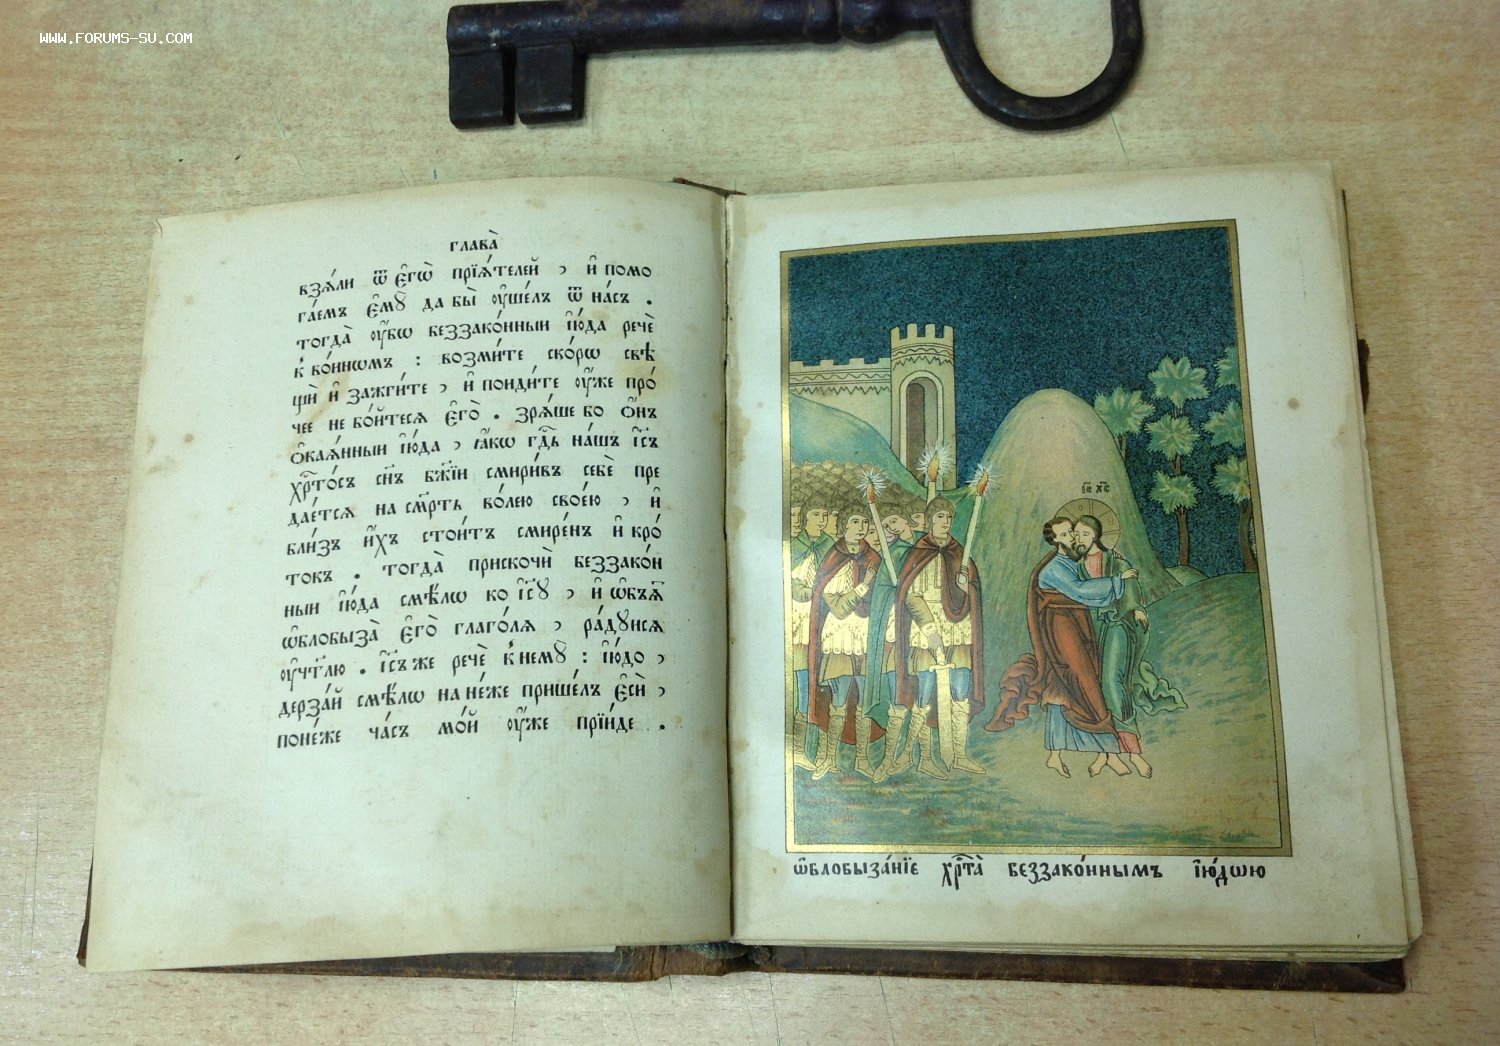 WWW.FORUMS-SU.COM
глава̀
взѧ́ли ѿ є҆гѡ̀ прїѧ́телей , и҆ помо
га́емъ є҆мꙋ̀ да бы̀ ᲂу҆ше́лъ ѿ на́съ .
тогда̀ ᲂу҆́бѡ беззако́нныи і҆ю́да речѐ
к̾ во́инѡмъ : возми́те ско́рѡ свѣ
щѝ и҆ зажги́те , и҆ поиди́те ᲂу҆́же про́
чее не бо́йтесѧ є҆го̀ . зрѧ́ше бо ѻ҆́нъ
ѻ҆каѧ́нныи і҆ю́да , ꙗ҆́кѡ гдⷭ҇ь на́шъ і҆с҃ъ
хрⷭ҇то́съ сн҃ъ бж҃їи смири́въ себѐ пре
дае́тсѧ на см҃рть во́лею свое́ю , и҆
бли́зъ и҆́хъ стои́тъ смире́нъ и҆ кро́
токъ . тогда̀ прискочѝ беззако́н
ныи і҆ю́да смѣ́лѡ ко і҆с҃ꙋ , и҆ ѡ҆б̾ѧ́т
ѡ҆блобыза̀ є҆го̀ глаго́лѧ , ра́дꙋисѧ
ᲂу҆чт҃лю . і҆с҃ъ же речѐ к̾ немꙋ̀ : і҆ю́до ,
дерза́й смѣ́лѡ на не́же прише́лъ є҆сѝ ,
поне́же ча́съ мо́й ᲂу҆́же прїи́де .
і҆с҃ х҃с
ѡ҆блобыза́нїе хрⷭ҇та̀ беззако́ннымъ і҆ю́дѡю